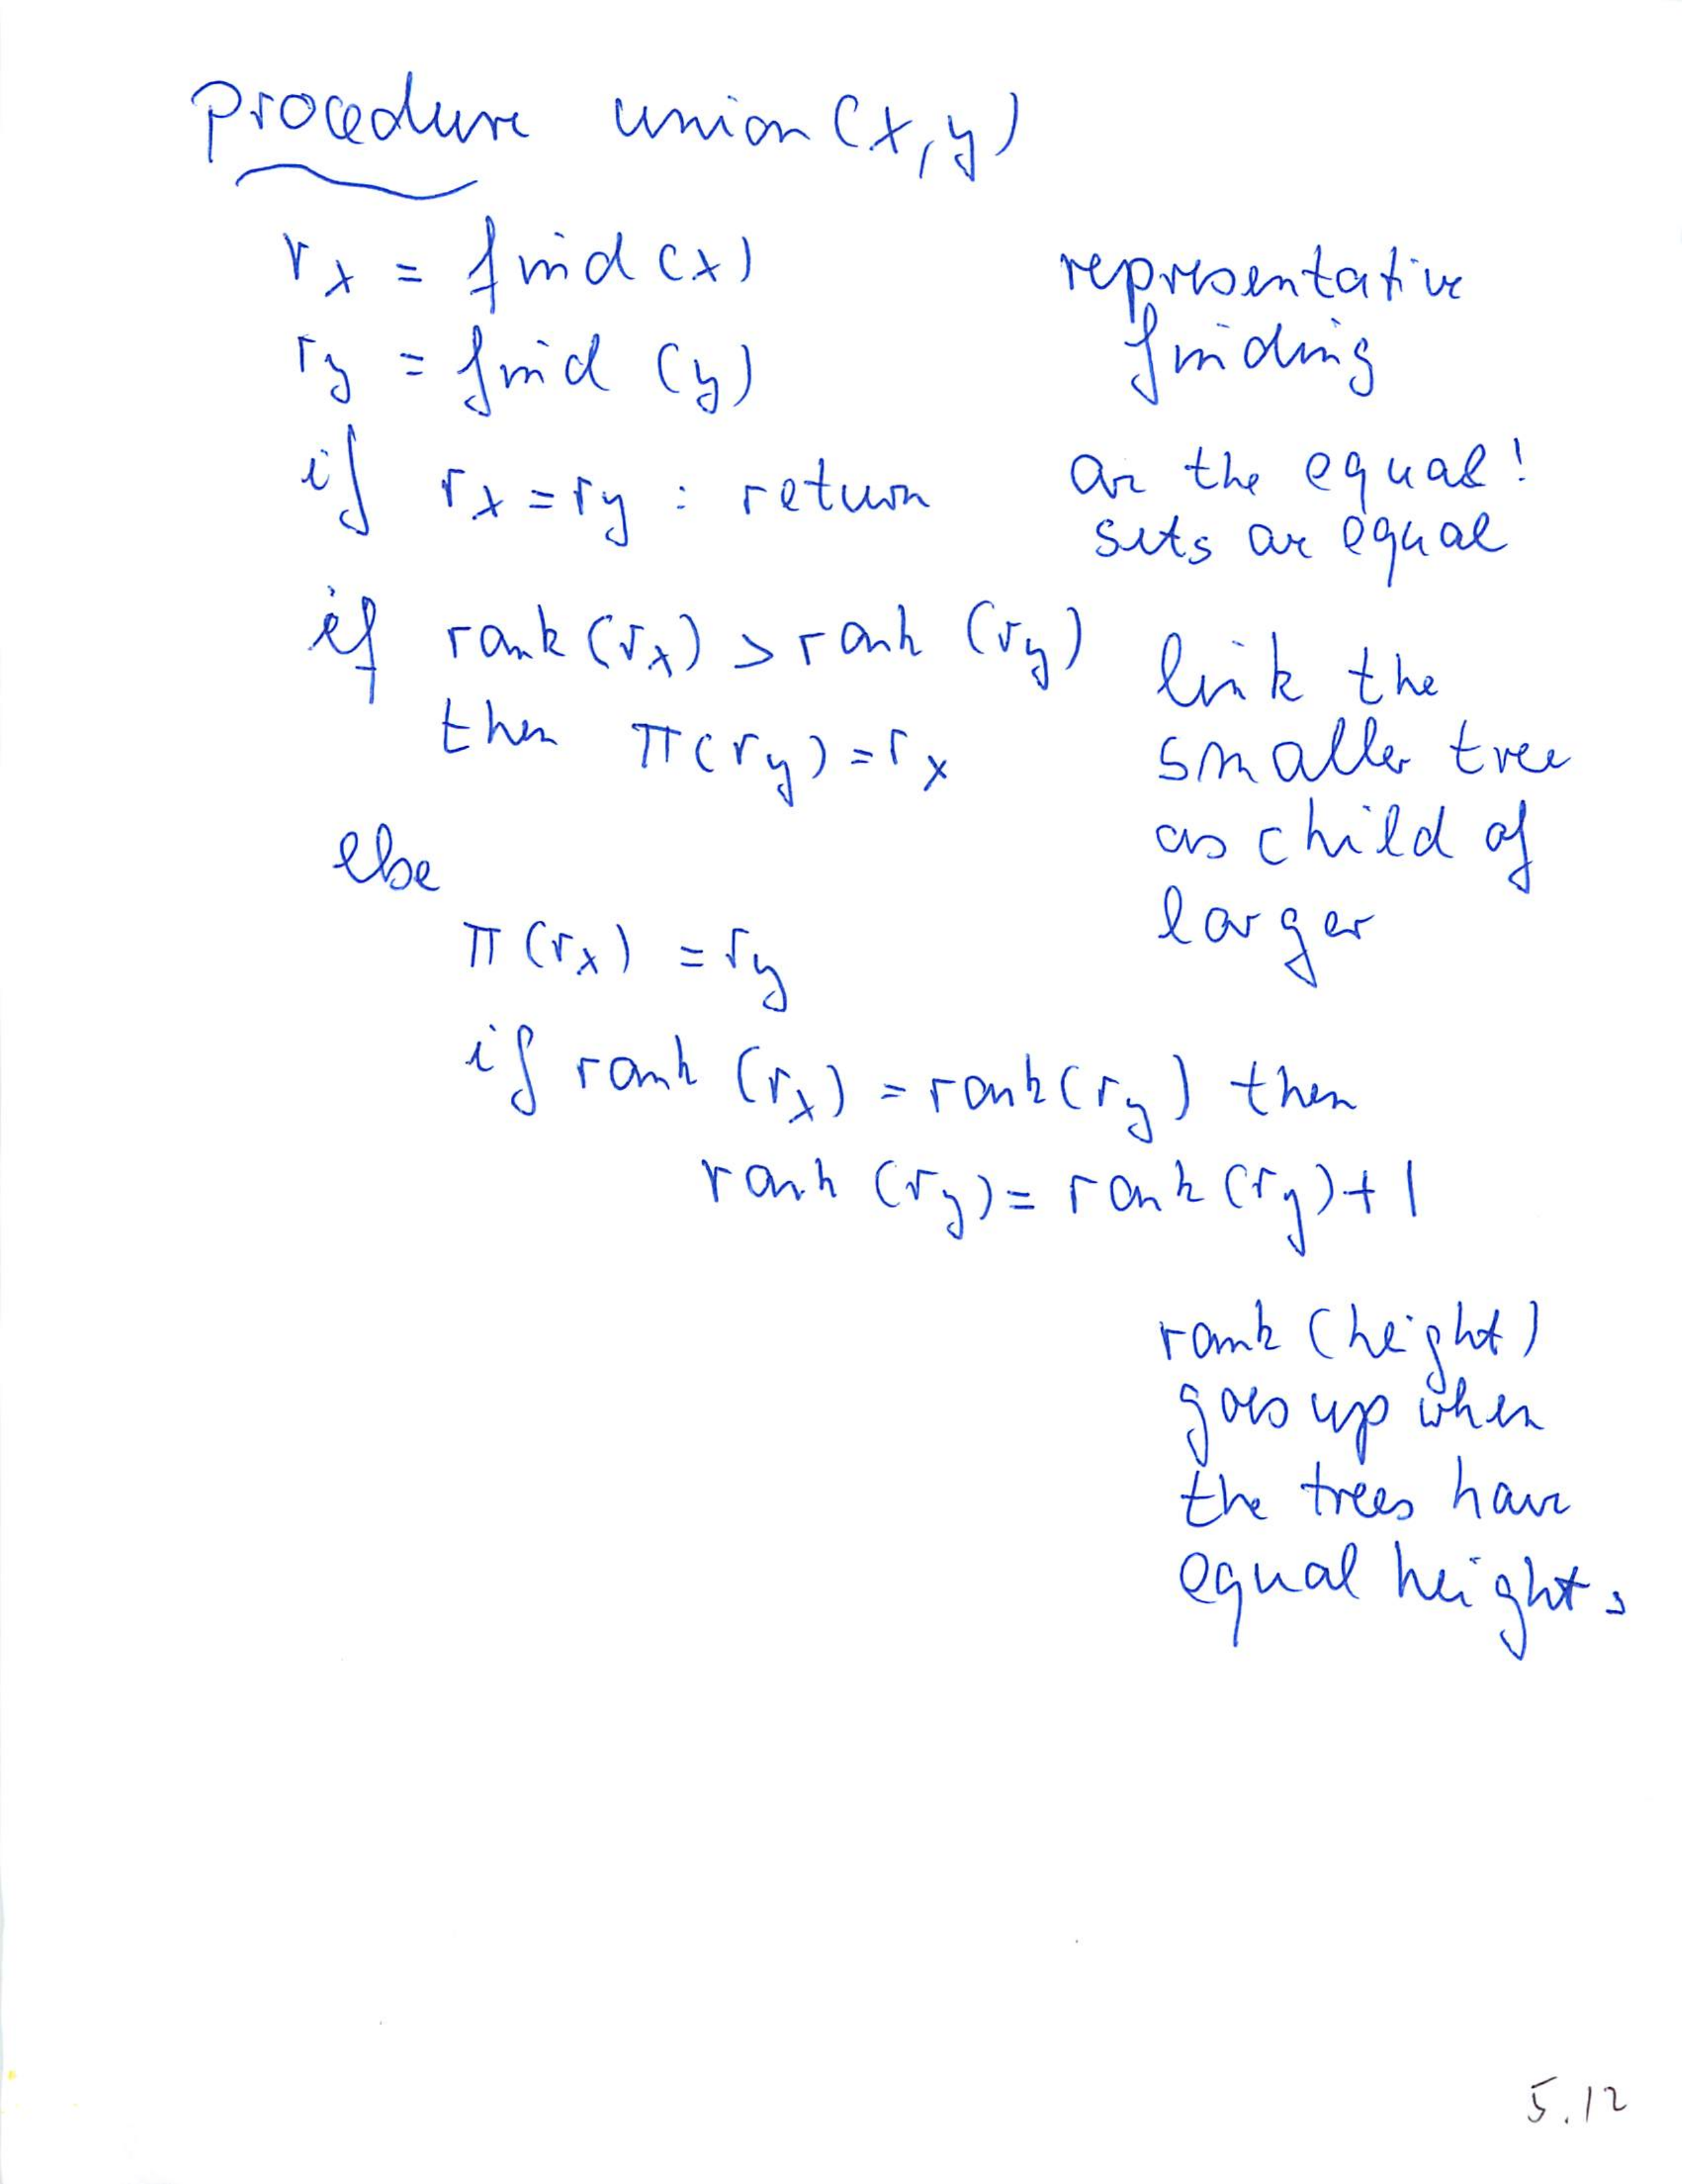 procedure union(x,y)
rx = find(x)
representative
finding
ry = find (y)
if rx = ry : return
are the equal!
sets are equal
if rank(rx) > rank (ry)
then π(ry) = rx
link the
smaller tree
as child of
larger
else
π(rx) = ry
if rank (rx) = rank(ry) then
rank (ry) = rank (ry) + 1
rank (height)
goes up when
the trees have
equal heights
5.12